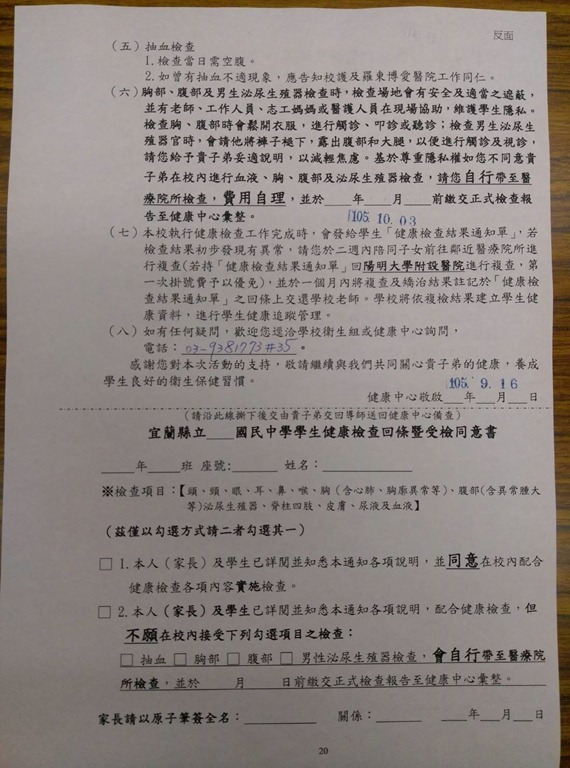 反面
（五）抽血檢查
1.檢查當日需空腹。
2.如曾有抽血不適現象，應告知校護及羅東博愛醫院工作同仁。
（六）胸部、腹部及男生泌尿生殖器檢查時，檢查場地會有安全及適當之遮蔽，
並有老師、工作人員、志工媽媽或醫護人員在現場協助，維護學生隱私。
檢查胸、腹部時會鬆開衣服，進行觸診、叩診或聽診；檢查男生泌尿生
殖器官時，會請他將褲子褪下，露出腹部和大腿，以便進行觸診及視診，
請您給予貴子弟妥適說明，以減輕焦慮。基於尊重隱私權如您不同意貴
子弟在校內進行血液、胸、腹部及泌尿生殖器檢查，請您自行帶至醫
療院所檢查，費用自理，並於＿＿年＿＿月＿＿前繳交正式檢查報
告至健康中心彙整。 105.10.03
（七）本校執行健康檢查工作完成時，會發給學生「健康檢查結果通知單」，若
檢查結果初步發現有異常，請您於二週內陪同子女前往鄰近醫療院所進
行複查(若持「健康檢查結果通知單」回陽明大學附設醫院進行複查，第
一次掛號費予以優免)，並於一個月內將複查及矯治結果註記於「健康檢
查結果通知單」之回條上交還學校老師。學校將依複檢結果建立學生健
康資料，進行學生健康追蹤管理。
（八）如有任何疑問，歡迎您逕洽學校衛生組或健康中心詢問，
電話：03-9381773#35。
感謝您對本次活動的支持，敬請繼續與我們共同關心貴子弟的健康，養成
學生良好的衛生保健習慣。
105.9.16
健康中心敬啟＿＿年＿＿月＿＿日
(請沿此線撕下後交由貴子弟交回導師送回健康中心備查)
宜蘭縣立＿＿＿國民中學學生健康檢查回條暨受檢同意書
＿＿＿年＿＿＿班 座號:＿＿＿＿ 姓名：＿＿＿＿＿＿
※檢查項目：【頭、頸、眼、耳、鼻、喉、胸（含心肺、胸廓異常等)、腹部(含異常腫大
等)泌尿生殖器、脊柱四肢、皮膚、尿液及血液】
（茲僅以勾選方式請二者勾選其一）
□ 1.本人（家長）及學生已詳閱並知悉本通知各項說明，並同意在校內配合
健康檢查各項內容實施檢查。
□ 2.本人（家長）及學生已詳閱並知悉本通知各項說明，配合健康檢查，但
不願在校內接受下列勾選項目之檢查：
□ 抽血 □ 胸部 □ 腹部 □ 男性泌尿生殖器檢查，會自行帶至醫療院
所檢查，並於＿＿＿月＿＿＿日前繳交正式檢查報告至健康中心彙整。
家長請以原子筆簽全名：＿＿＿＿＿ 關係：＿＿＿＿ ＿＿年＿＿月＿＿日
20